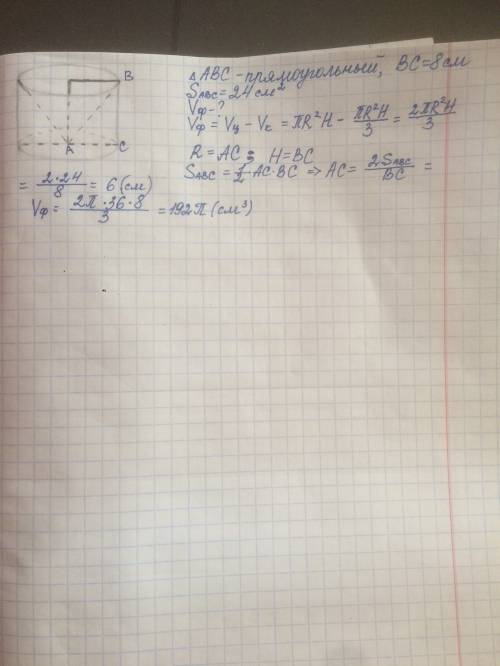 B
A
C
△ ABC - прямоугольный, BC = 8 см
S_ABC = 24 см²
Vф - ?
Vф = Vц - Vк = πR²H - πR²H/3 = 2πR²H/3
R = AC; H = BC
S_ABC = 1/2 · AC · BC ⇒ AC = 2S_ABC/BC =
= 2·24/8 = 6 (см)
Vф = 2π·36·8/3 = 192π (см³)